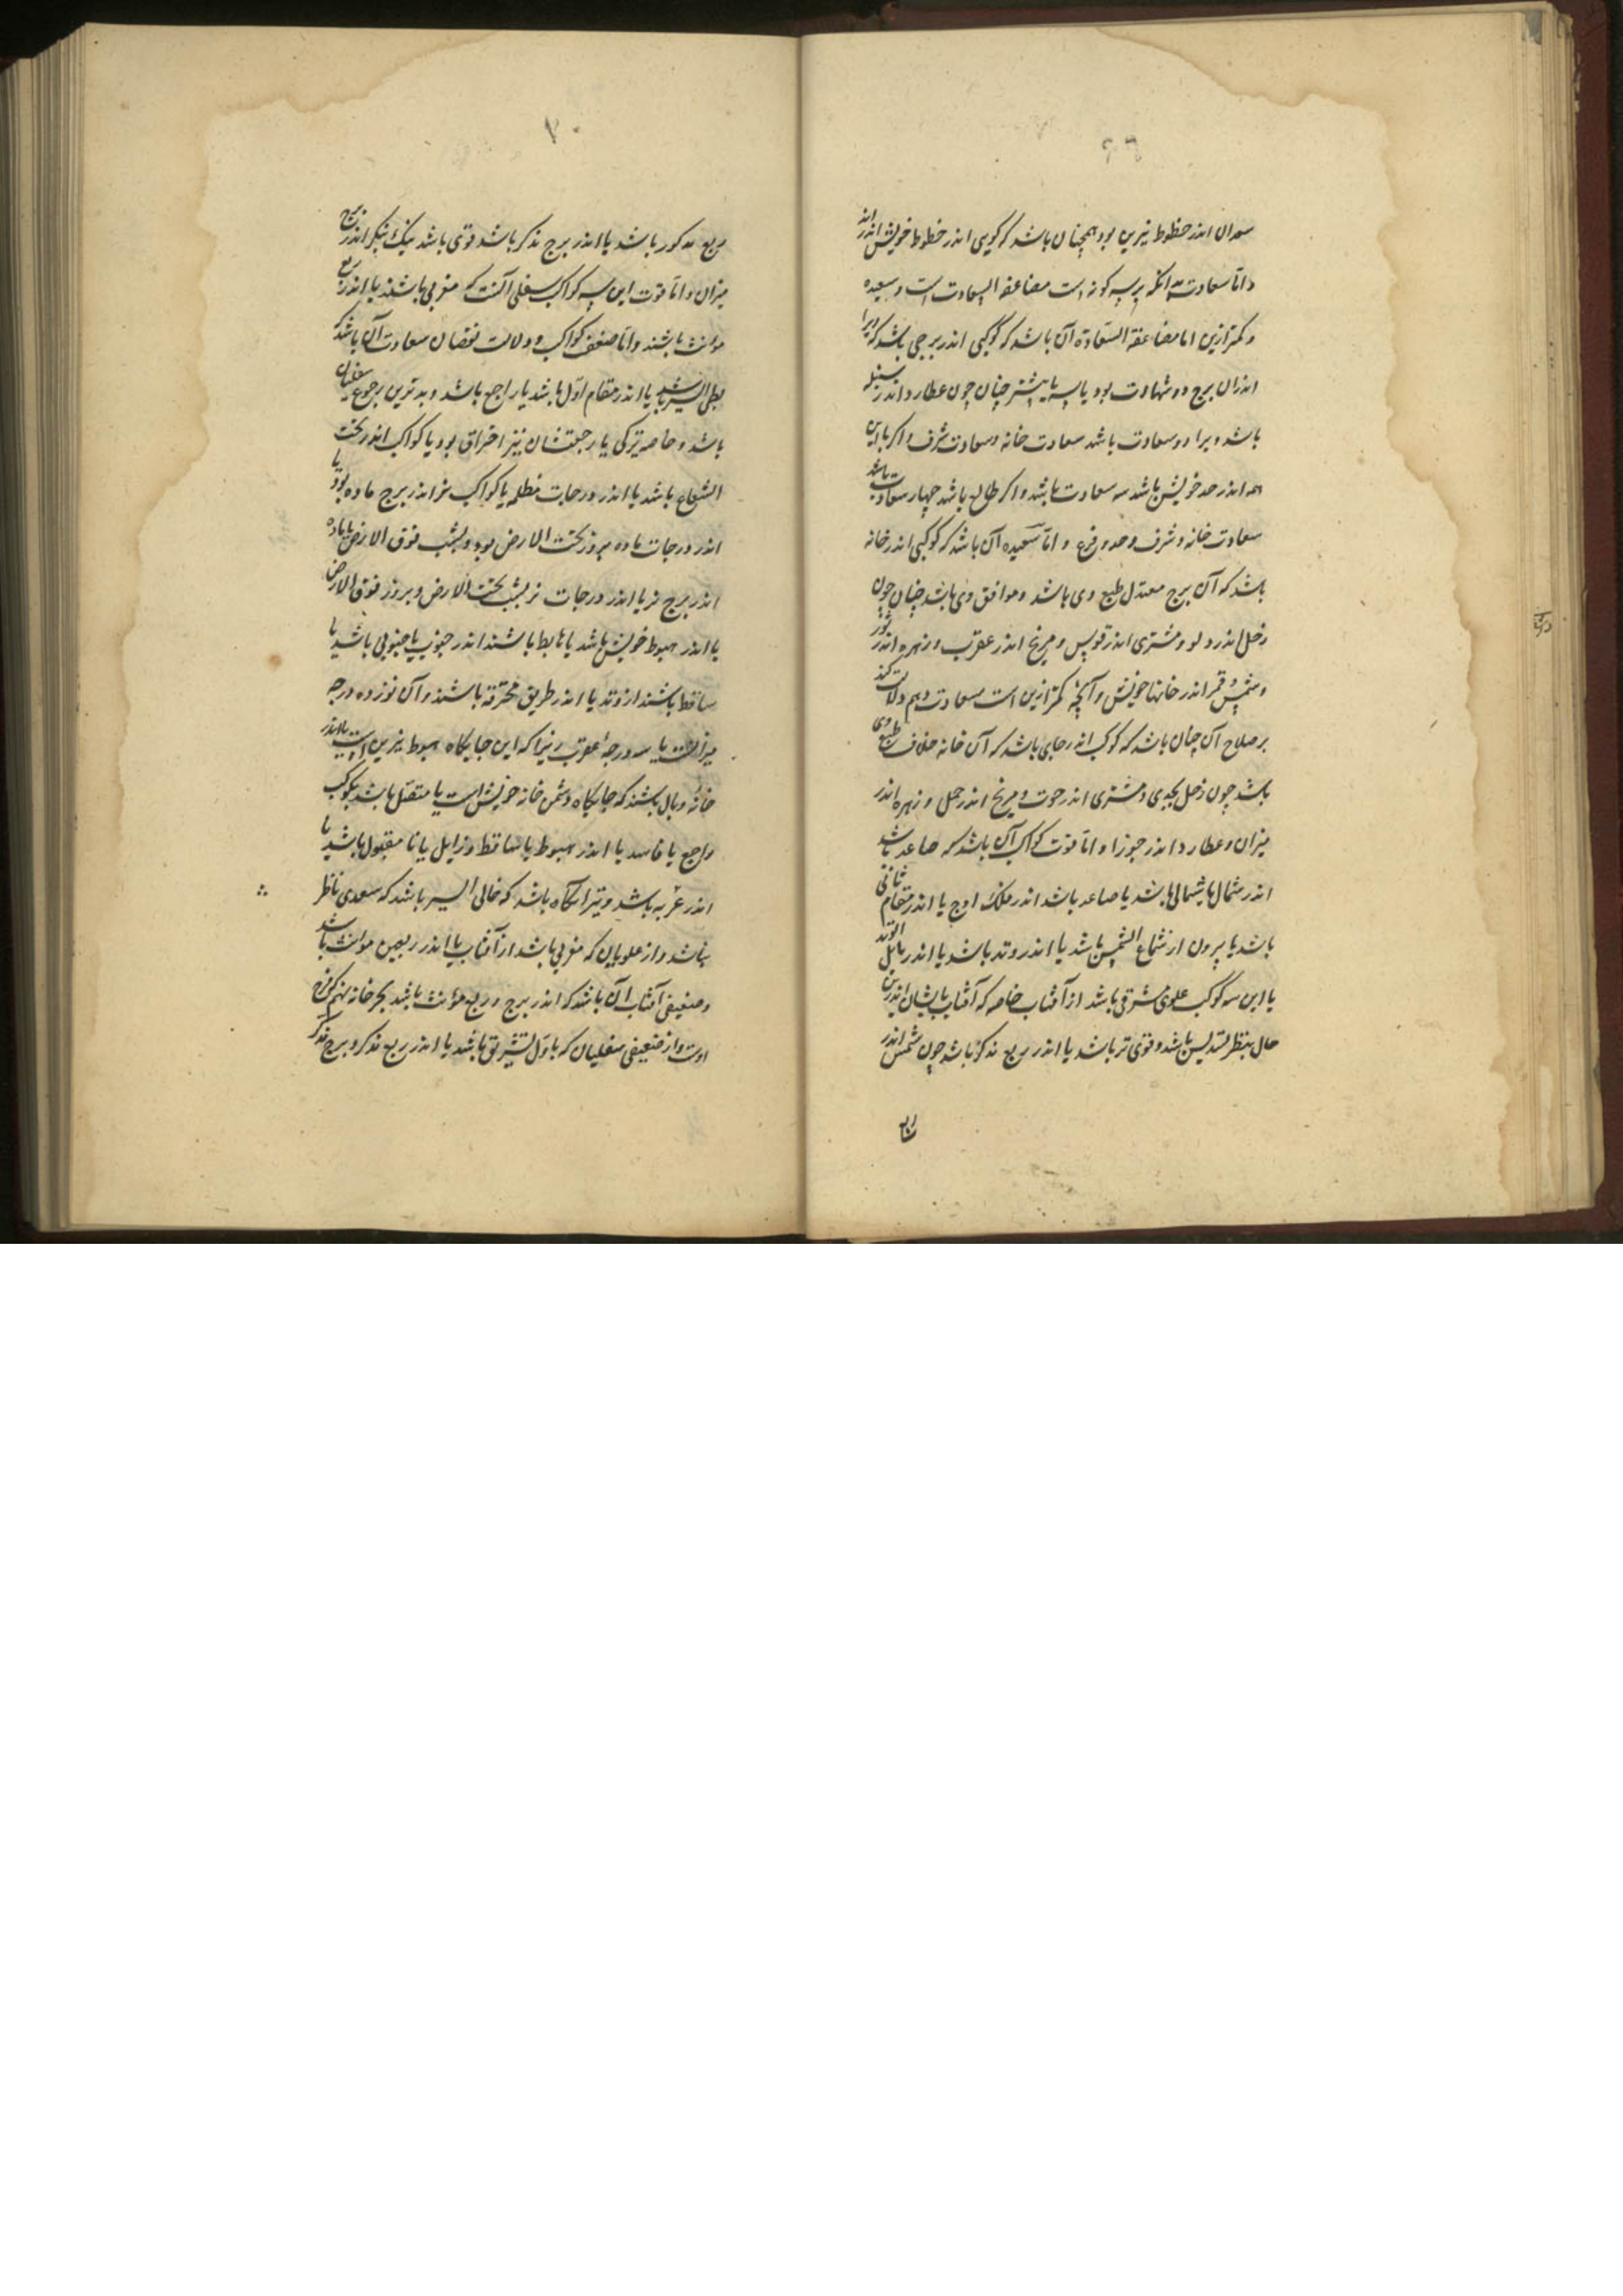 ۶۹
سعدان اندر حظوظ نیرین بود همچنان باشد که گویی اندر حظوظ خویش اندراند
و اما سعادت بدانکه بر سه گونه است مضاعفه السعادت است و سعیده
و کمتر ازین اما مضاعفة السعادة آن باشد که کوکبی اندر برجی باشد که ویرا
اندران برج دو شهادت بود یا سه یا بیشتر چنان چون عطارد اندر سنبله
باشد ویرا دو سعادت باشد سعادت خانه و سعادت شرف و اکر با این
همه اندر حد خویش باشد سه سعادت باشد و اکر طالع باشد چهار سعادت باشد
سعادت خانه و شرف و حد و فرح و اما سعیده آن باشد که کوکبی اندر خانه
باشد که آن برج معتدل طبع وی باشد و موافق وی باشد چنان چون
زحل اندر دلو و مشتری اندر قوس و مریخ اندر عقرب و زهره اندر ثور
و شمس و قمر اندر خانها خویش و آنچه کمتر ازین است سعادت و هم دلالت کند
بر صلاح آن چنان باشد که کوکب اندر جای باشد که آن خانه خلاف طبع وی
باشد چون زحل بجدی و مشتری اندر حوت و مریخ اندر حمل و زهره اندر
میزان و عطارد اندر جوزا و اما قوت کواکب آن باشد که صاعد باشد
اندر شمال یا شمالی باشد یا صاعد باشد اندر فلک اوج یا اندر مقام ثانی
باشد یا بیرون از شعاع الشمس باشد یا اندر وتد باشد یا اندر مایل الوتد
یا این سه کوکب علوی شرقی باشد از آفتاب خاصه که آفتاب بایشان اندرین
حال بنظر تسدیس باشد و قوی تر باشد یا اندر ربع مذکر باشد چون شمس اندر
ربع
۷۰
ربع مذکور باشد یا اندر برج مذکر باشد قوی باشد نیک نیک مکر اندر برج
میزان و اما قوت این سه کواکب سفلی آنست که مغربی باشند یا اندر ربع
مونث باشند و اما ضعف کواکب و دلالت نقصان سعادت آن باشد که
بطی السیر باشد یا اندر مقام اول باشد یا راجع باشد و بدترین رجوع سفلیان
باشد و خاصه ترکی یا رجعتشان نیز احتراق بود یا کواکب اندر تحت
الشعاع باشد یا اندر درجات مظلمه یا کواکب نر اندر برج ماده بود یا
اندر درجات ماده بروز تحت الارض بود و بشب فوق الارض یا ماده
اندر برج نر یا اندر درجات نر بشب تحت الارض و بروز فوق الارض
یا اندر هبوط خویش باشد یا هابط باشند اندر جنوب یا جنوبی باشند یا
ساقط باشند از وتد یا اندر طریق محترقه باشند و آن نوزده درجه
میزانست یا سه درجه عقرب زیرا که این جایکاه هبوط نیرین است یا اندر
خانه وبال باشند که جایکاه دشمن خانه خویش است یا متصل باشد بکوکب
راجع یا فاسد یا اندر هبوط یا ساقط و زایل یا نا مقبول باشد یا
اندر غربه باشد و بتر آنکاه باشد که خالی السیر باشد که سعدی ناظر
نباشد و از علویان که مغربی باشد از آفتاب یا اندر ربعین مونث باشد
و ضعیفی آفتاب آن باشد که اندر برج و ربع مؤنث باشد بجز خانه نهم که فرح
اوست و از ضعیفی سفلیان که باول تشریق باشد یا اندر ربع مذکر و برج مذکر